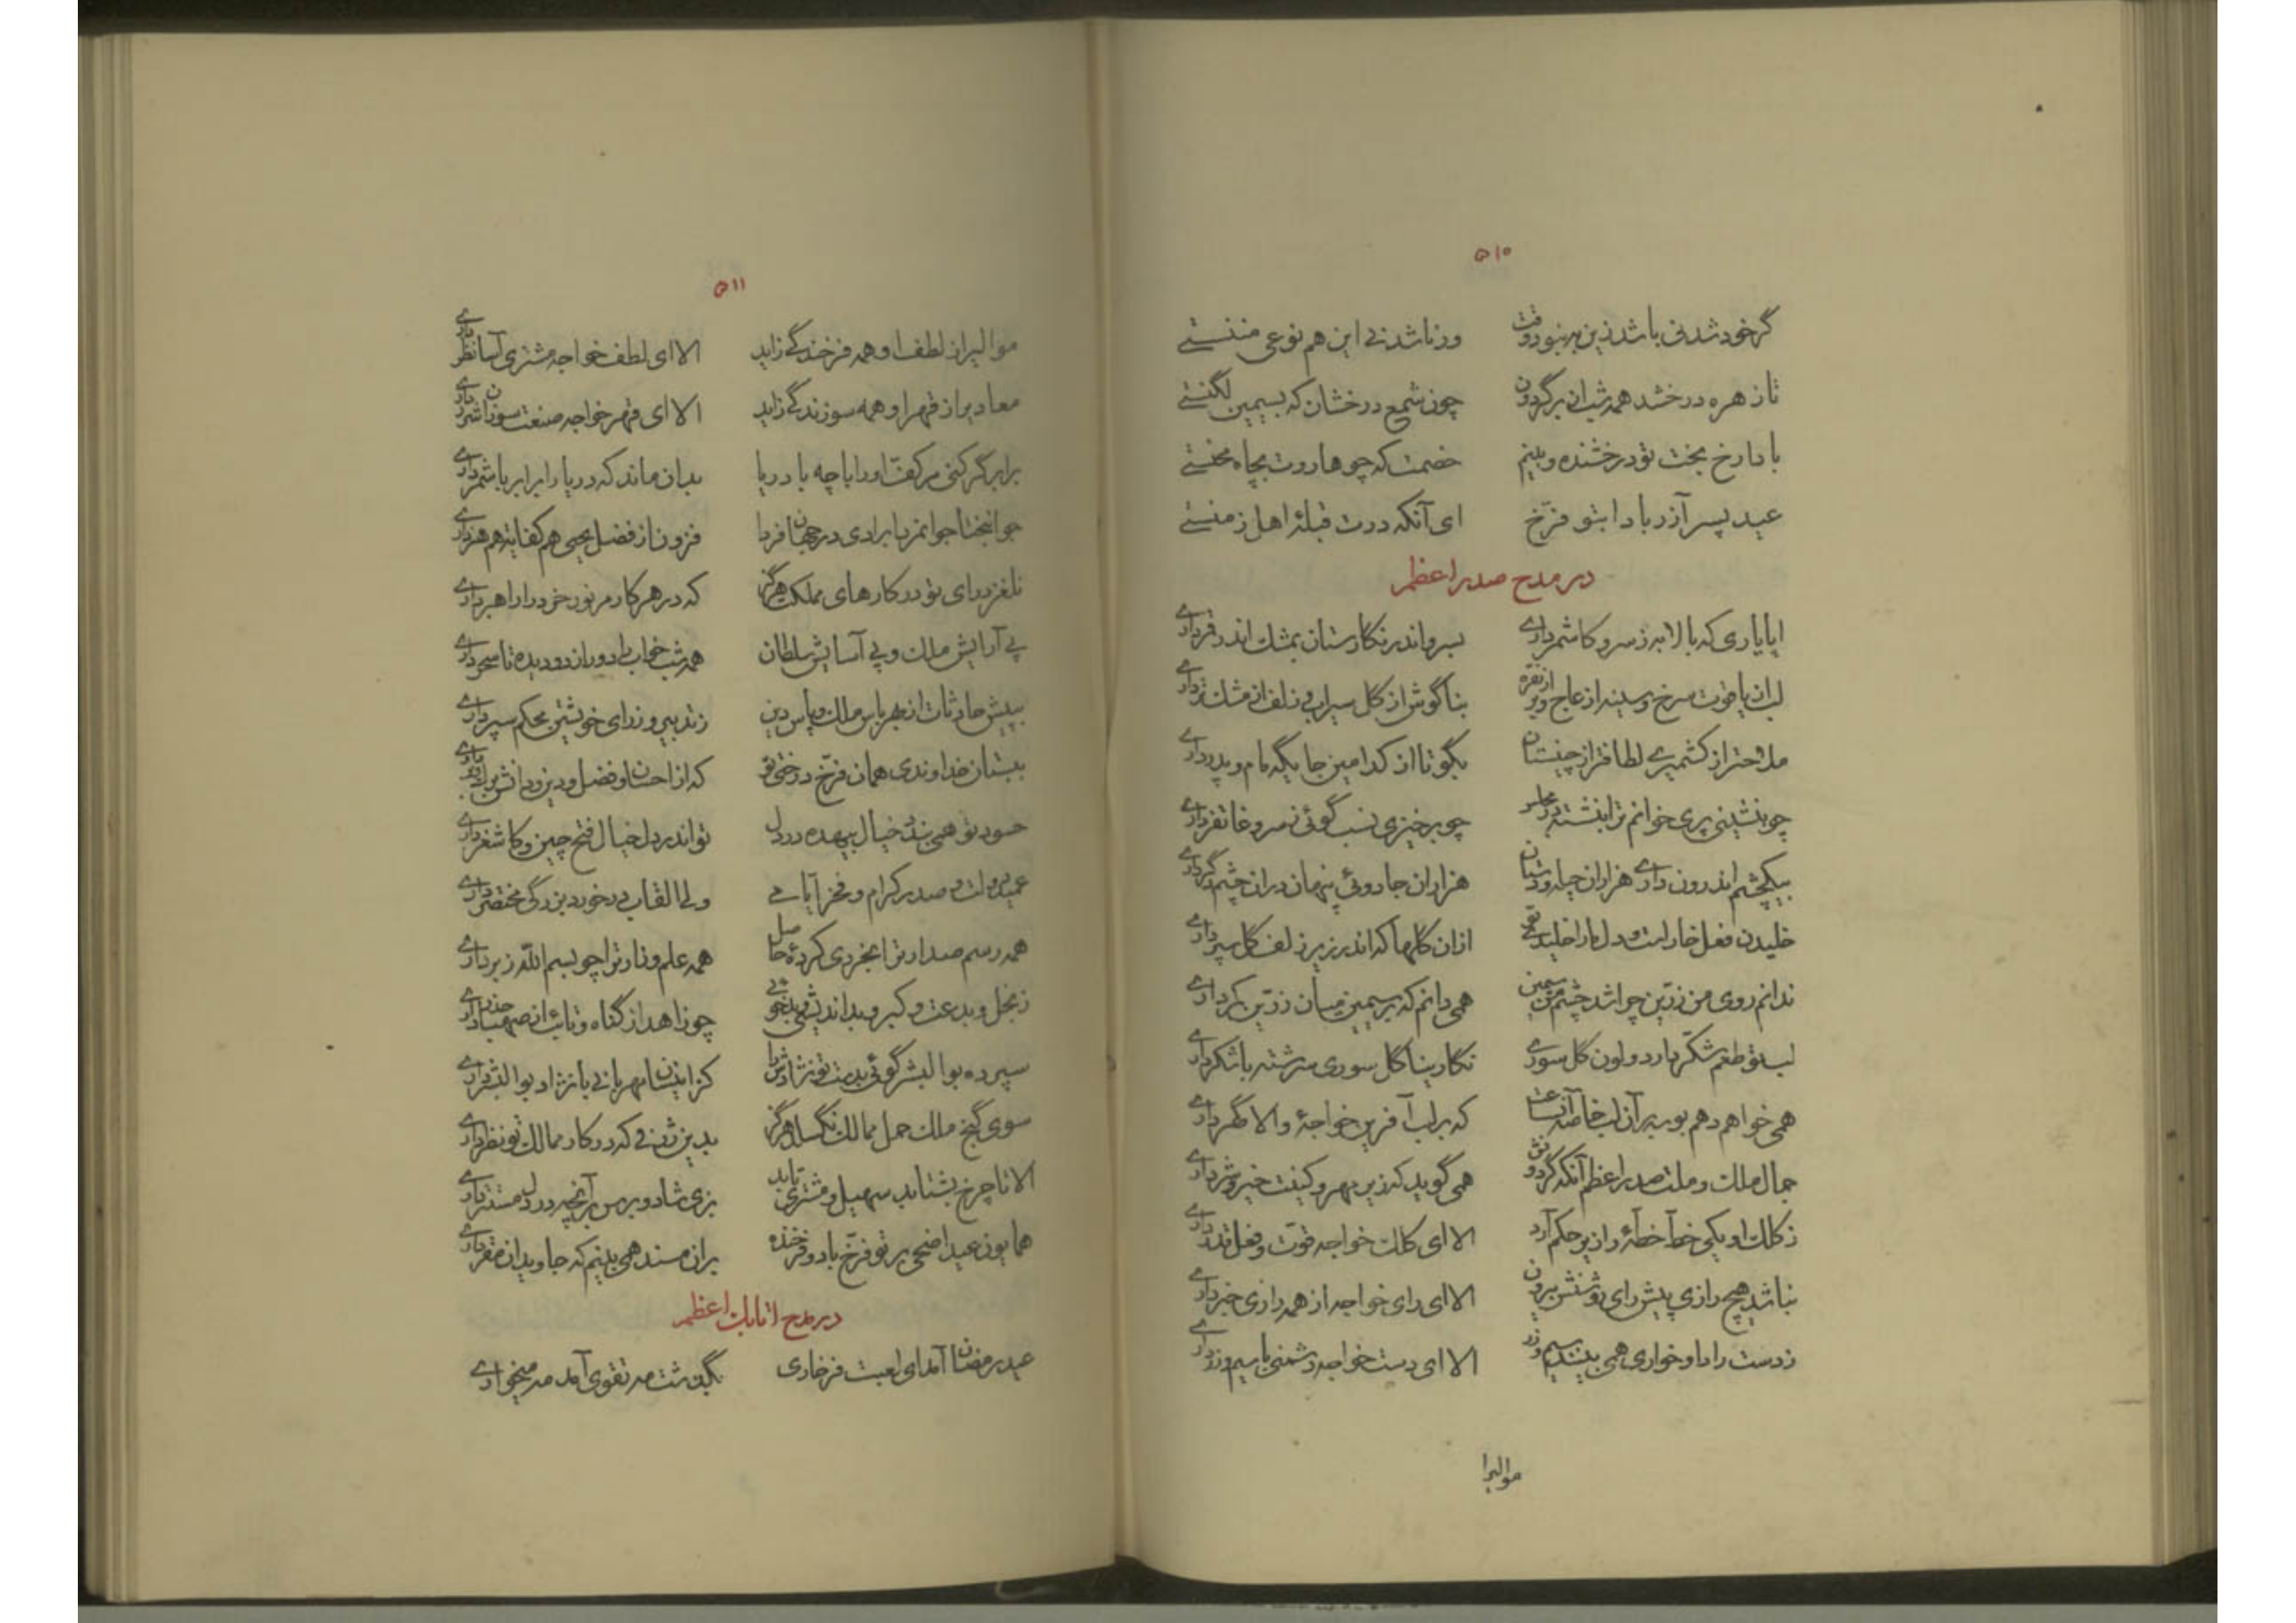 ۵۱۰
گر خود شدنی باشد زین بهر نبودوقت ور ناشدنی این هم نوعی منستی
تا زهره درخشد همه شب از بر گردون چون شمع درخشان که بسیمین لگنستی
بادا رخ بخت تو درخشنده و بینم خصمت که چو هاروت بچاه محنستی
عید پسر آزر بادا بتو فرّخ ای آنکه درت قبلهٔ اهل زمنستی
در مدح صدر اعظم
ایا یاری که بالا به ز سرو کاشمر داری بسرو اندر نگارستان بمشک اندر قمر داری
لب از یاقوت سرخ و سینه از عاج و بر از نقره بناگوش از گل سیراب و زلف از مشک تر داری
ملاحت از کشمیر لطافت از چینستان بگو تا از کدامین جایگه مام و پدر داری
چو بنشینی پری خوانم ترا بنشسته در مجلس چو برخیزی نسب گوئی ز سرو غاتفر داری
بیکچشم اندرون داری هزاران حیله و دستان هزاران جادوئی پنهان در ان چشم دگر داری
خلیدن فعل خار است و دل ما را خلیدستی ازان گلها که اندر زیر زلف گل سپر داری
ندانم روی من زرّین چرا شد چشم من سیمین همی دانم که بر سیمین میان زرّین کمر داری
لب تو طعم شکّر دارد و لون گل سوری نگارینا گل سوری سرشته با شکر داری
همی خواهم دهم بوسه بر آن لب خاصه آن ساعت که بر لب آفرین خواجهٔ والا گهر داری
جمال ملک و ملت صدر اعظم آنکه گردونش همی گوید کزین مهر و کینت خیر و شر داری
ز کلک او یکی خط آ خطهٔ را زیر حکم آرد الا ای کلک خواجه قوّت و فعل قدر داری
نباشد هیچ رازی پیش رای روشنش بیرون الا ای رای خواجه از همه رازی خبر داری
ز دست راد او خواری همی بینند سیم و زر الا ای دست خواجه دشمنی با سیم و زر داری
موالیرا
۵۱۱
موالیرا ز لطف او همه فرخندگی زاید الا ای لطف خواجه مشتری آسا نظر داری
معادیرا ز قهر او همه سوزندگی زاید الا ای قهر خواجه صنعت سوزان شرر داری
برابر گر کنی مر کفّ او را با چه با دریا بدان ماند که دریا را برابر با شمر داری
جوانبختا جوانمردا برادی در جهان فردا فزون از فضل یحیی هم کفایت هم هنر داری
نلغزد رای تو در کارهای مملکت هرگز که در هر کار مر نور خرد را راهبر داری
پی آرایش ملک و پی آسایش سلطان همه شب خواب را دور از دو دیده تا سحر داری
بپیش حادثات از بهر پاس ملک و پاس دین ز تدبیر و ز رای خویشتن محکم سپر داری
ببستان خداوندی همان فرّخ درختی تو که از احسان و فضل و دین و دانش برگ و بر داری
حسود تو همی بندد خیال بیهده در دل تو اندر دل خیال فتح چین و کاشغر داری
عمید دولت و صدر کرام و فخر آبائی ولی القاب در خورد بزرگی مختصر داری
همه رسم صدارت را بخردی کردهٔ حاصل همه علم وزارت را چو بسم الله ز بر داری
ز بخل و بدعت و کبر و بداندیشی و بدخوئی چو زاهد از گناه و تائب از صهبا حذر داری
سپرده بوالبشر گوئی بدست تو نژادش را کز اینسان مهربانی با نژاد بوالبشر داری
سوی گنج ملک حمل ممالک نگسلد هرگز بدین ژرفی که در کار ممالک تو نظر داری
الا تا چرخ بشتابد سهیل و مشتری تابد بزی شاد و برس بر آنچه در دل مستتر داری
همایون عید اضحی بر تو فرّخ باد و فرخنده بران مسند همی بینم که جاویدان مقر داری
در مدح اتابک اعظم
عید رمضان آمد ای لعبت فرخاری بگذشت مه تقوی آمد مه میخواری